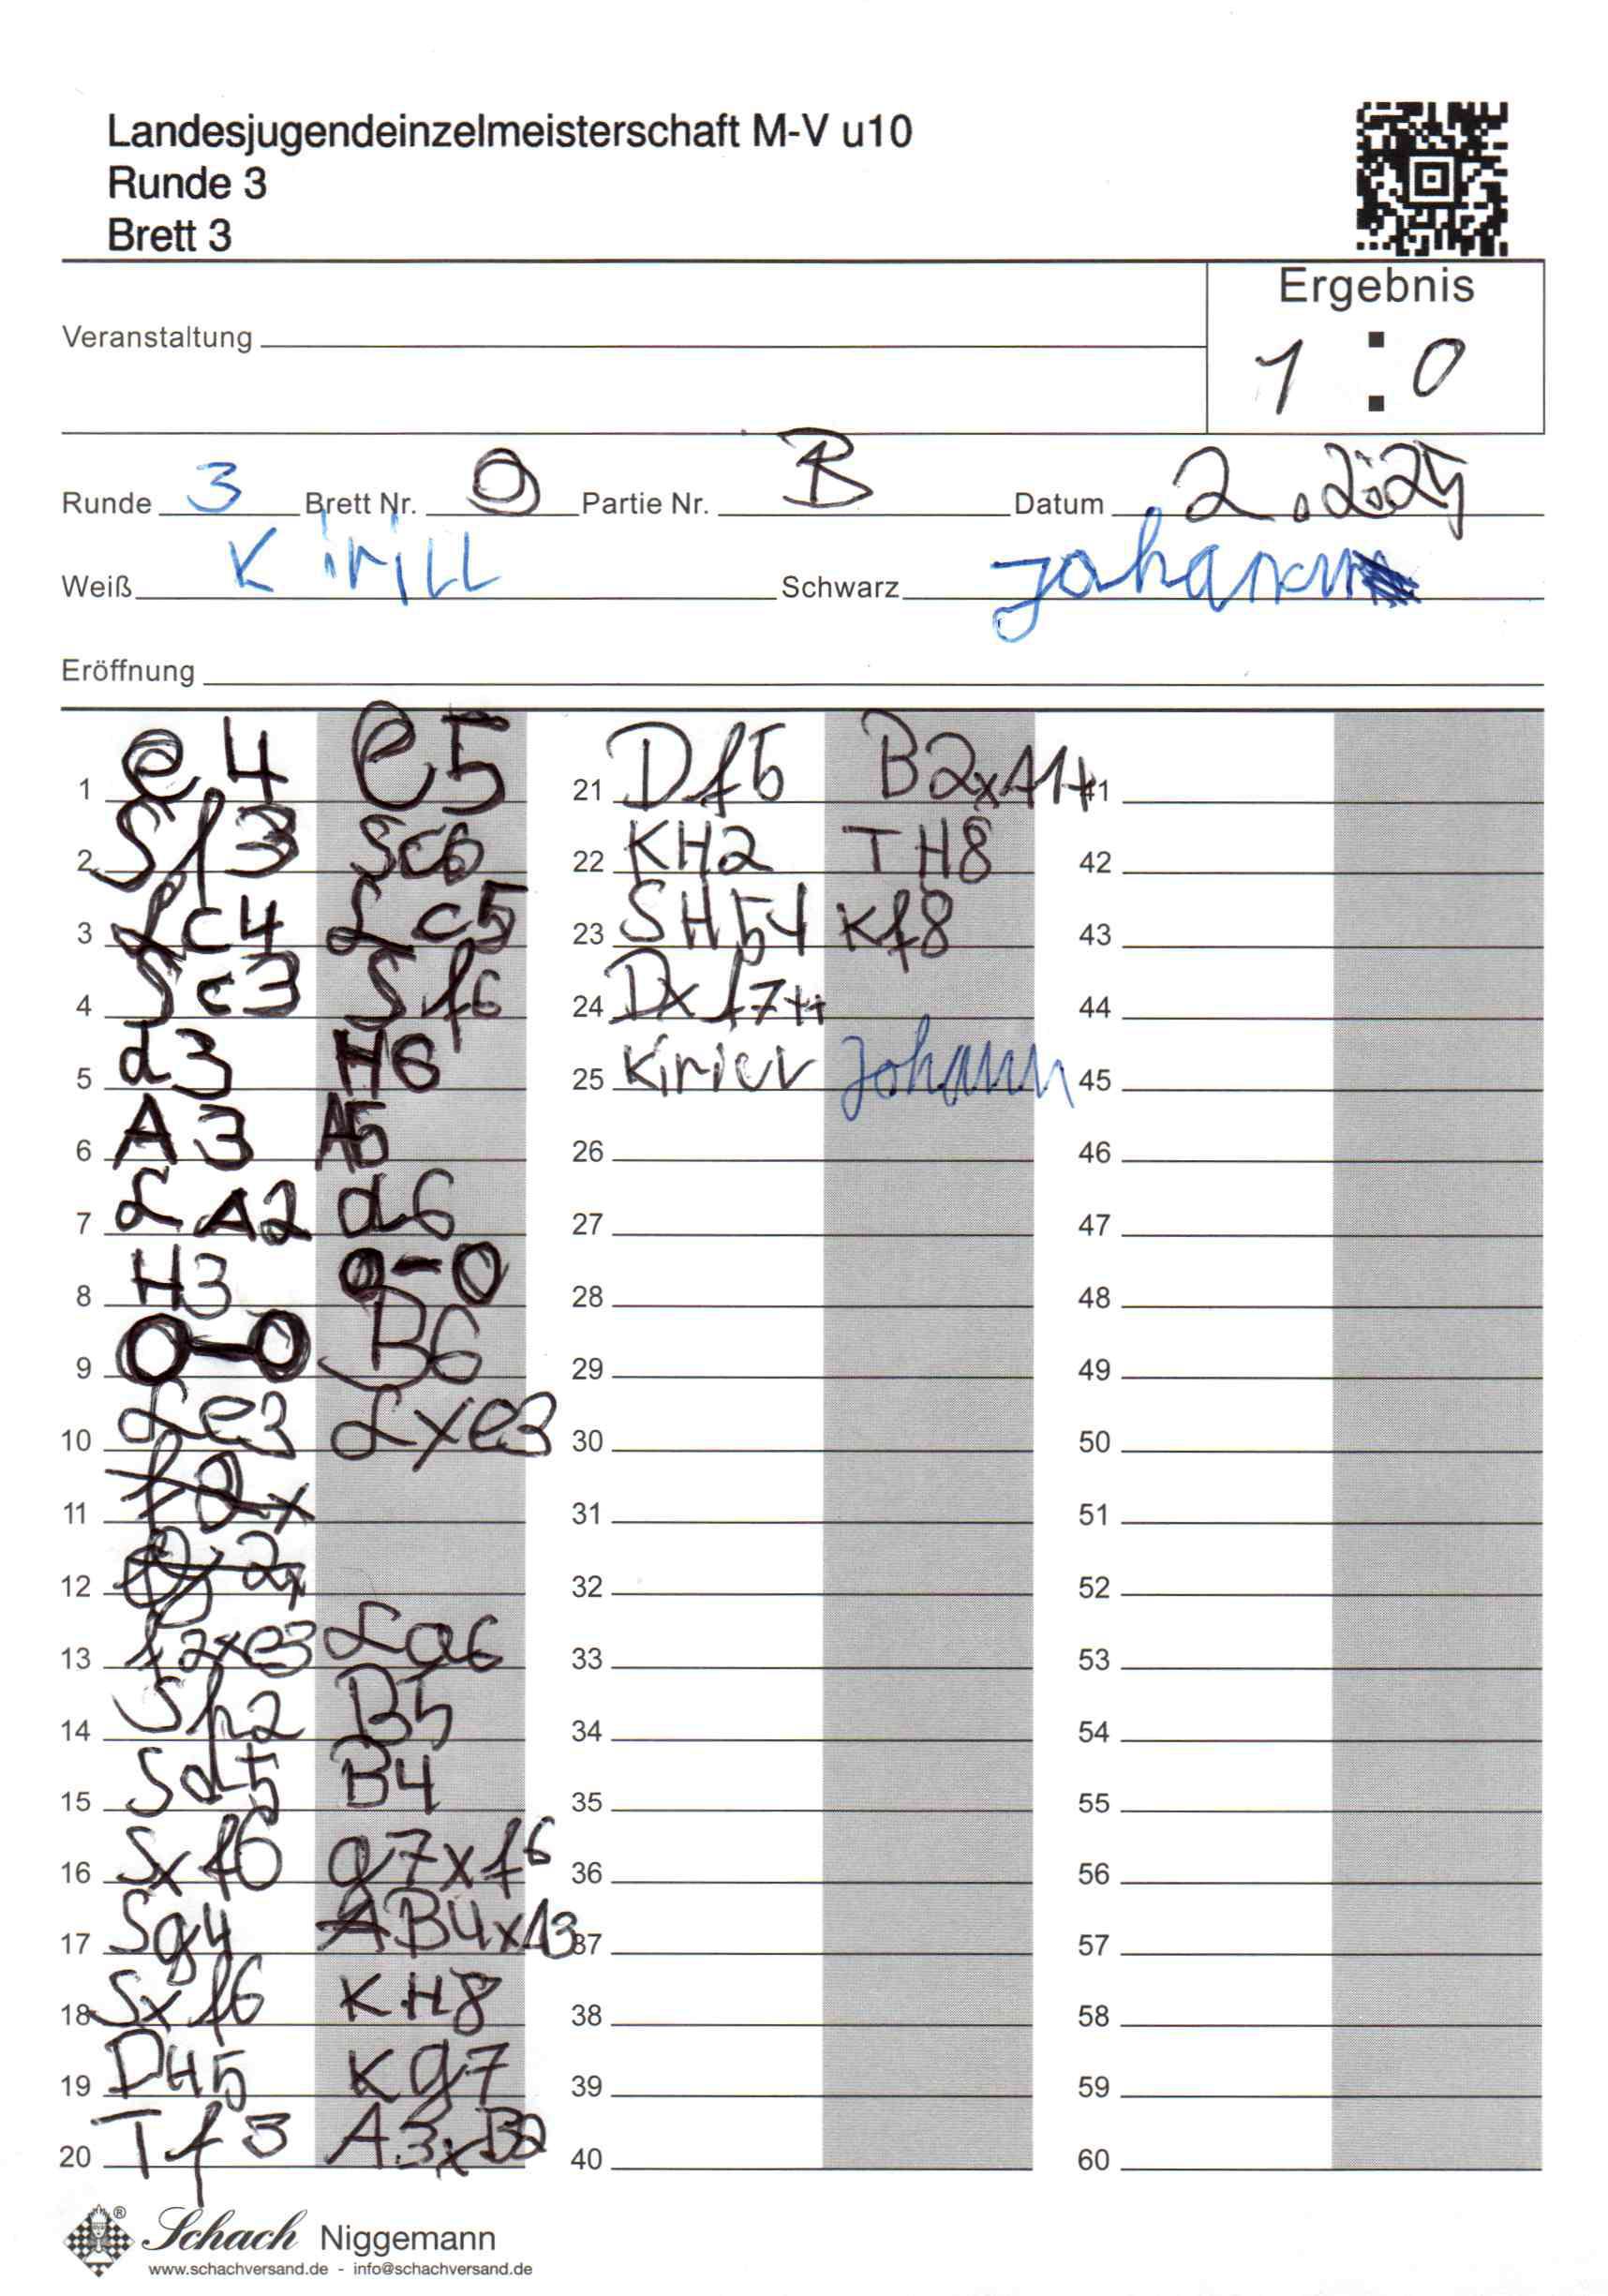 Landesjugendeinzelmeisterschaft M-V u10
Runde 3
Brett 3
Ergebnis
1 : 0
Veranstaltung
Runde 3 Brett Nr. 9 Partie Nr. B Datum 2.2.25
Weiß Kirill Schwarz Johann
Eröffnung
1 e4 e5
2 Sf3 Sc6
3 Lc4 Lc5
4 Sc3 Sf6
5 d3 H6
6 A3 A5
7 LA2 d6
8 H3 0-0
9 0-0 B6
10 Le3 Lxe3
11
12
13 f2xe3 La6
14 Sh2 B5
15 Sd5 B4
16 Sxf6 g7xf6
17 Sg4 AB4xA3
18 Sxf6 KH8
19 DH5 Kg7
20 Tf3 A3xB2
21 Df5 B2xA1+
22 KH2 TH8
23 SH5+ Kf8
24 Dxf7++
25 Kirill Johann
26
27
28
29
30
31
32
33
34
35
36
37
38
39
40
41
42
43
44
45
46
47
48
49
50
51
52
53
54
55
56
57
58
59
60
Schach Niggemann
www.schachversand.de - info@schachversand.de